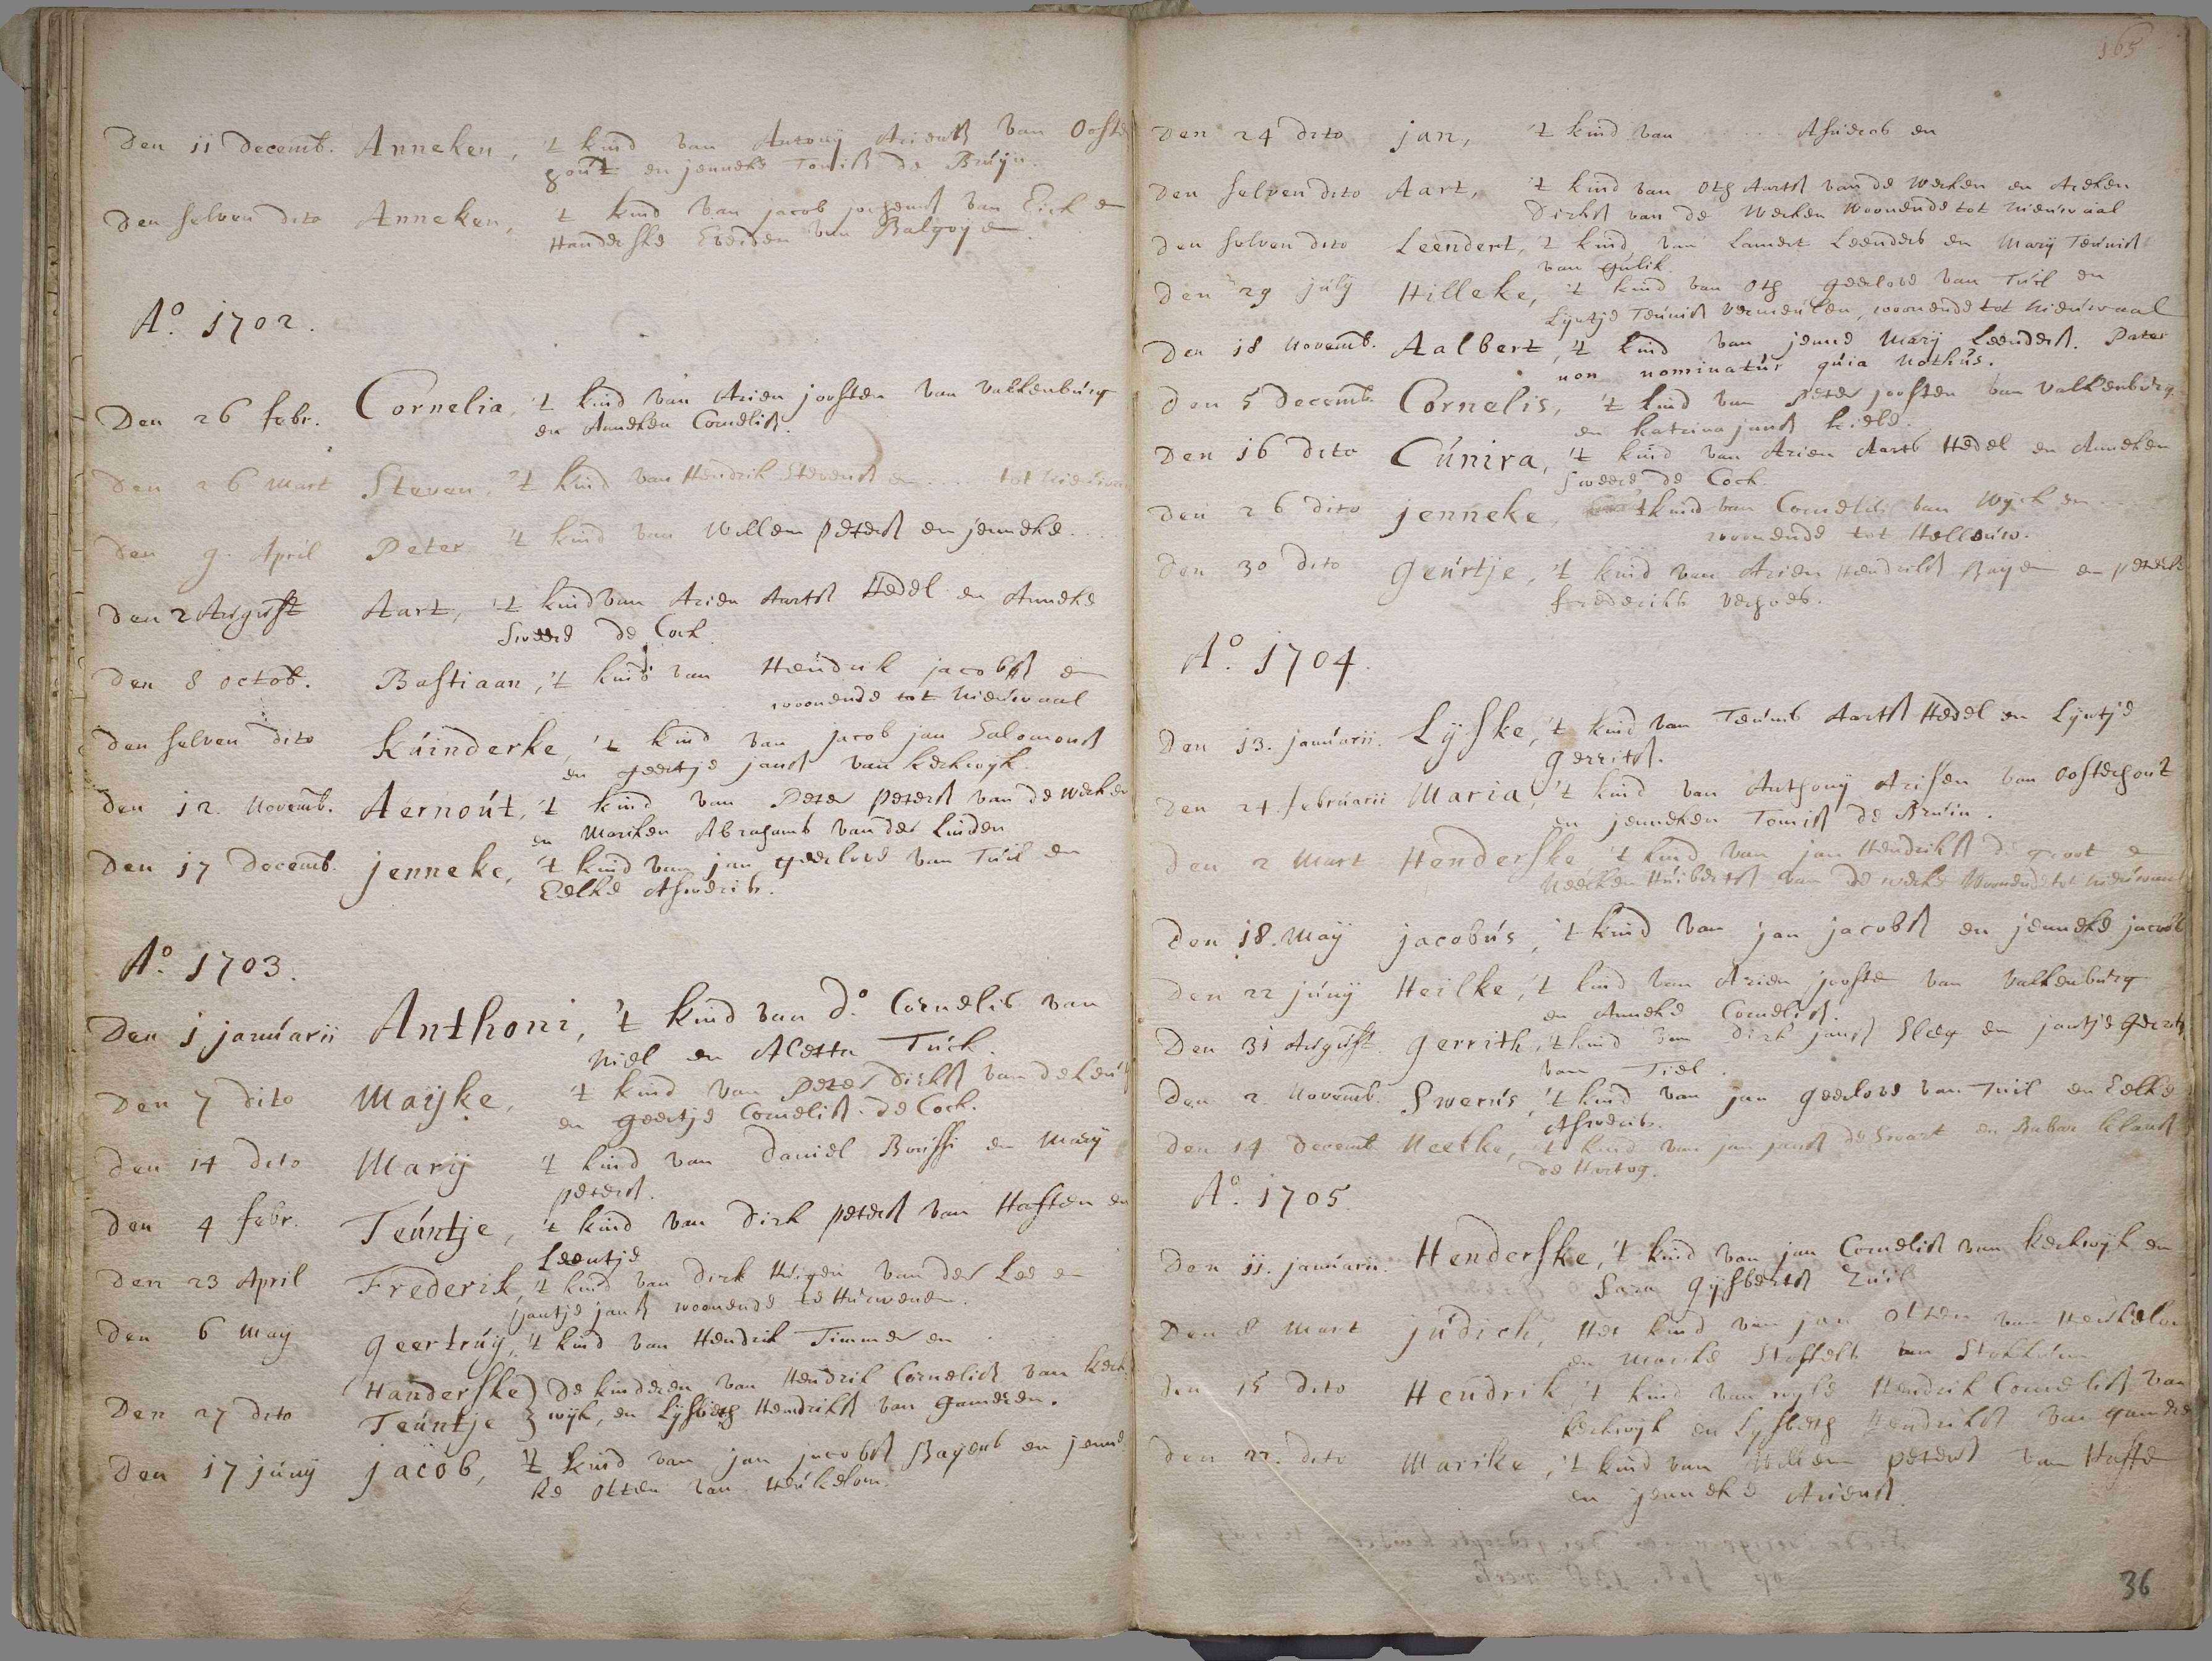 Den 11 Decemb. Anneken, 't kind van Antony Ariensz van Ooster
hout en jenneke Tonisz de Bruÿn.
Den selven dito Anneken, 't kind van jacob jochemsz van Eick en
Handerske Everden van Balgoye
Aº. 1702.
Den 26 febr. Cornelia, 't kind van Arien joosten van Valkenburg
en Anneken Cornelisz.
Den 26 Mart Steven, 't kind van Hendrik Stevensz en .... tot Nieuwaal
Den 9 April Peter 't kind van Willem petersz en jenneke ...
Den 2 August Aart, 't kind van Arien Aartsz Hedel en Anneke
Sweers de Cock.
Den 8 octob. Bastiaan, 't kind van Hendrik jacobsz en
woonende tot Nieuwaal
Den selven dito Kuinderke, 't kind van jacob jan Salomonsz
en geertje jansz van kerkwijk
Den 12 Novemb. Aernout, 't kind van Peter petersz van de Werken
en Mariken Abrahams van der Linden
Den 17 Decemb. jenneke, 't kind van jan geerlofs van Tuil en
Eelke Asweris.
Aº. 1703.
Den 1 januarii Anthoni, 't kind van dº Cornelis van
Niel en Aletta Tuck.
Den 7 dito Maijke, 't kind van Peter Dirksz van
en geertje Cornelisz. de Cock.
Den 14 dito Marij 't kind van Daniel Boussi en Marij
petersz.
Den 4 febr. Teuntje, 't kind van Dirk petersz van Haften en
Leentje
Den 23 April Frederik, 't kind van Dirk Huigen van der Lee en
jantje jansz woonende te Hurwenen.
Den 6 Maij geertruij, 't kind van Hendrik Timmer en
Den 27 dito Handerske } De kinderen van Hendrik Cornelisz van kerk
Teuntje } wijk, en Lijsbeth Hendriksz van gameren.
Den 17 junij jacob, 't kind van jan jacobsz Bayens en jenne
ke Otten van Heukelom.
165
Den 24 dito jan, 't kind van ...... Asueros en
Den selven dito Aart, 't kind van Oth Aartsz van de Werken en Aeken
Dirksz van de Werken woonende tot Nieuwaal
Den selven dito Leendert, 't kind van Lamert Leenders en Marij Teunisz
van gulik.
Den 29 julij Hilleke, 't kind van Oth geerlofs van Tuil en
Lijntje Teunisz Vermeulen, woonende tot Nieuwaal
Den 18 Novemb. Aalbert, 't kind van jenne Marij Leendersz. Pater
non nominatur quia nothus.
Den 5 Decemb. Cornelis, 't kind van Peter joosten van Valkenburg
en katrina jansz kiels.
Den 16 dito Cunira, 't kind van Arien Aarts Hedel en Anneken
Sweers de Cock.
Den 26 dito jenneke, 't kind van Cornelis van Wijck en ...
woonende tot Hellouw.
Den 30 dito geurtje, 't kind van Arien Hendriksz Baijen en peterke
frederiks verhoes.
Aº. 1704.
Den 13. januarii. Lijske, 't kind van Teunis Aartsz Hedel en Lijntje
gerritsz.
Den 24. februarii Maria, 't kind van Anthonij Arisen van Oosterhout
en jenneken Tonisz de Bruin.
Den 2 Mart Henderske 't kind van jan Hendriksz de groot en
Neeken Huibertsz van de werke Woonende tot Nieuwaal
Den 18. Maij jacobus, 't kind van jan jacobsz en jenneke jacobs
Den 22 junij Heilke, 't kind van Arien jooste van Valkenburg
en Anneke Cornelisz.
Den 31 August. gerrith, 't kind van Dirk jansz Sleg en jantje gerrits
van Tiel.
Den 2. Novemb. Swerus, 't kind van jan geerlofs van Tuil en Eelke
Asweris.
Den 14 Decemb Neelke, 't kind van jan jansz de Swart en Barbar klaasz
de Hartog.
Aº. 1705.
Den 11. januarii. Henderske, 't kind van jan Cornelisz van kerkwijk en
Sara gijsbertsz Zuil
Den 8 Mart judick, Het kind van jan Otten van Heukelom
en Marike Stoffels van
Den 15 dito Hendrik 't kind van wijle Hendrik Cornelisz van
kerkwijk en Lijsbeth Hendriksz van gamere
Den 22. dito Marike, 't kind van Willem petersz van Hafte
en jenneke Ariensz.
36